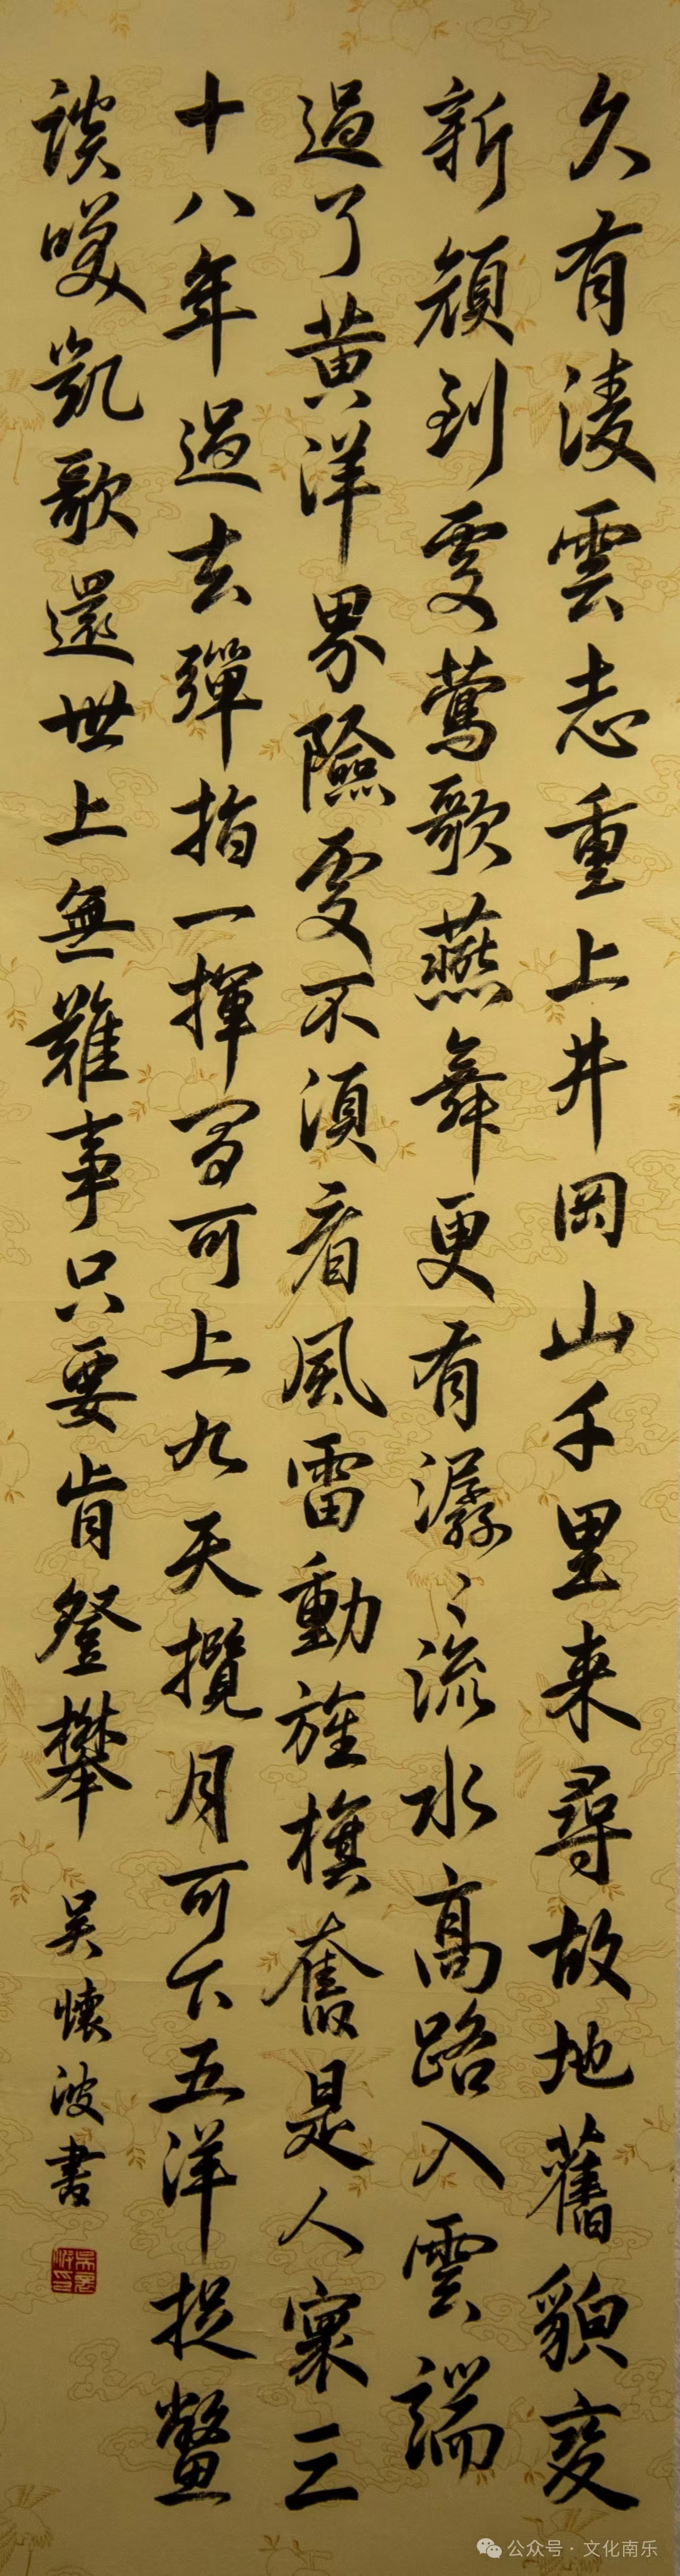 久有凌雲志重上井岡山千里来尋故地舊貌变
新顔到處莺歌燕舞更有潺〻流水高路入雲端
過了黄洋界險處不須看風雷動旌旗奮是人寰三
十八年過去彈指一揮間可上九天攬月可下五洋捉鳖
談笑凱歌還世上無難事只要肯登攀 吴懷波書
公众号·文化南乐